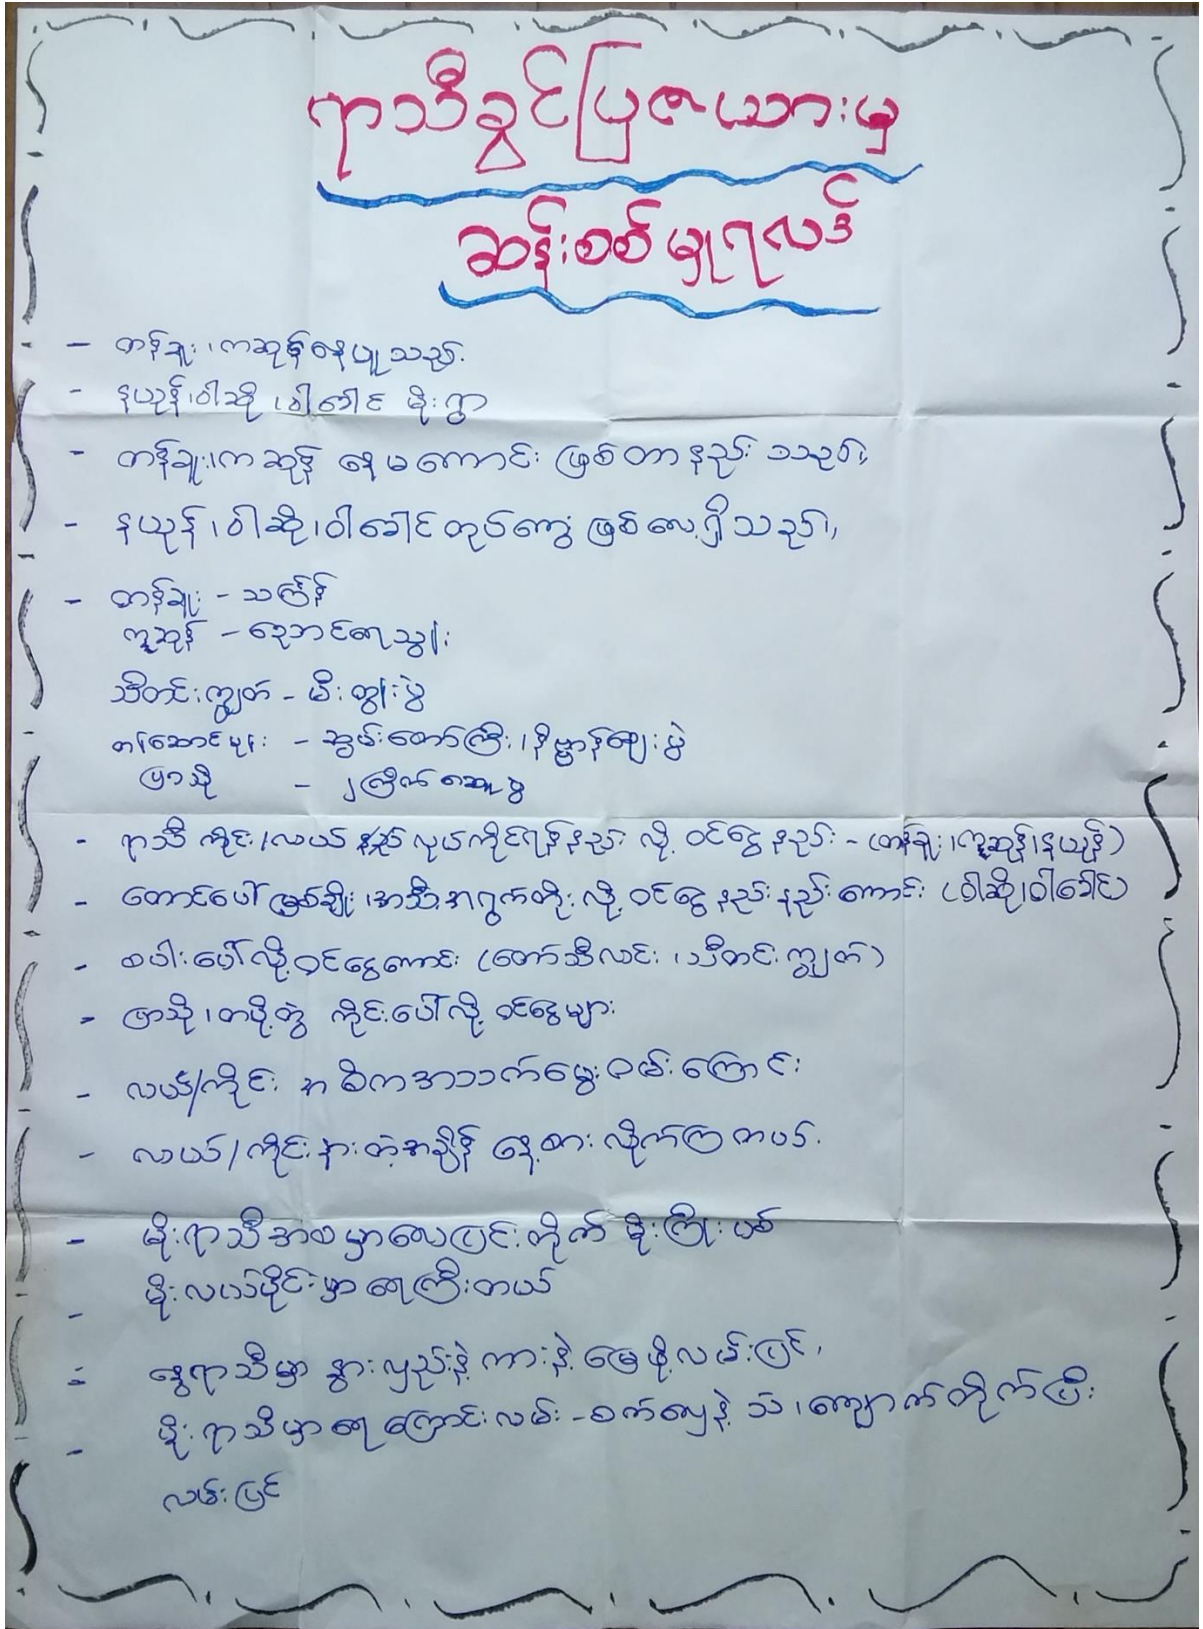 ရာသီခွင်ပြဇယားမှ
ဆန်းစစ်မှုရလဒ်
- တန်ခူး၊ကဆုန်နေပူသည်.
- နယုန်၊ဝါဆို၊ဝါခေါင် မိုးရွာ
- တန်ခူး၊ကဆုန် နေမကောင်းဖြစ်တာနည်းသည်၊
- နယုန်၊ဝါဆို၊ဝါခေါင်တုပ်ကွေးဖြစ်လေ့ရှိသည်၊
- တန်ခူး - သင်္ကြန်
ကဆုန် - ညောင်ရေသွန်း
သီတင်းကျွတ် - မီးထွန်းပွဲ
တန်ဆောင်မုန်း - ဆွမ်းတော်ကြီး၊နိဗ္ဗာန်ဈေးပွဲ
ပြာသို -
- ရာသီ ကိုင်း/လယ် လုပ်ကိုင်ရန်နည်းလို့ ဝင်ငွေနည်း - (တန်ခူး၊ကဆုန်၊နယုန်)
- တောင်ပေါ် မျှစ်ချိုး၊အသီးအရွက်တိုးလို့ ဝင်ငွေနည်းနည်းကောင်း (ဝါဆို၊ဝါခေါင်)
- စပါးပေါ်လို့ဝင်ငွေကောင်း (တော်သလင်း၊သီတင်းကျွတ်)
- ပြာသို၊တပို့တွဲ ကိုင်းပေါ်လို့ ဝင်ငွေများ
- လယ်/ကိုင်း အဓိကအသက်မွေးဝမ်းကြောင်း
- လယ်/ကိုင်းနားတဲ့အချိန် နေ့စားလိုက်ကြတယ်.
- မိုးရာသီအစမှာလေပြင်းတိုက် မိုးကြိုးပစ်
- မိုးလယ်ပိုင်းမှာရေကြီးတယ်
- နွေရာသီမှာ နွားလှည်းနဲ့ ကားနဲ့ မြေဖို့လမ်းပြင်၊
- မိုးရာသီမှာရေကြောင်းလမ်း - စက်လှေနဲ့ သဲ၊ကျောက်တိုက်ပြီး
လမ်းပြင်